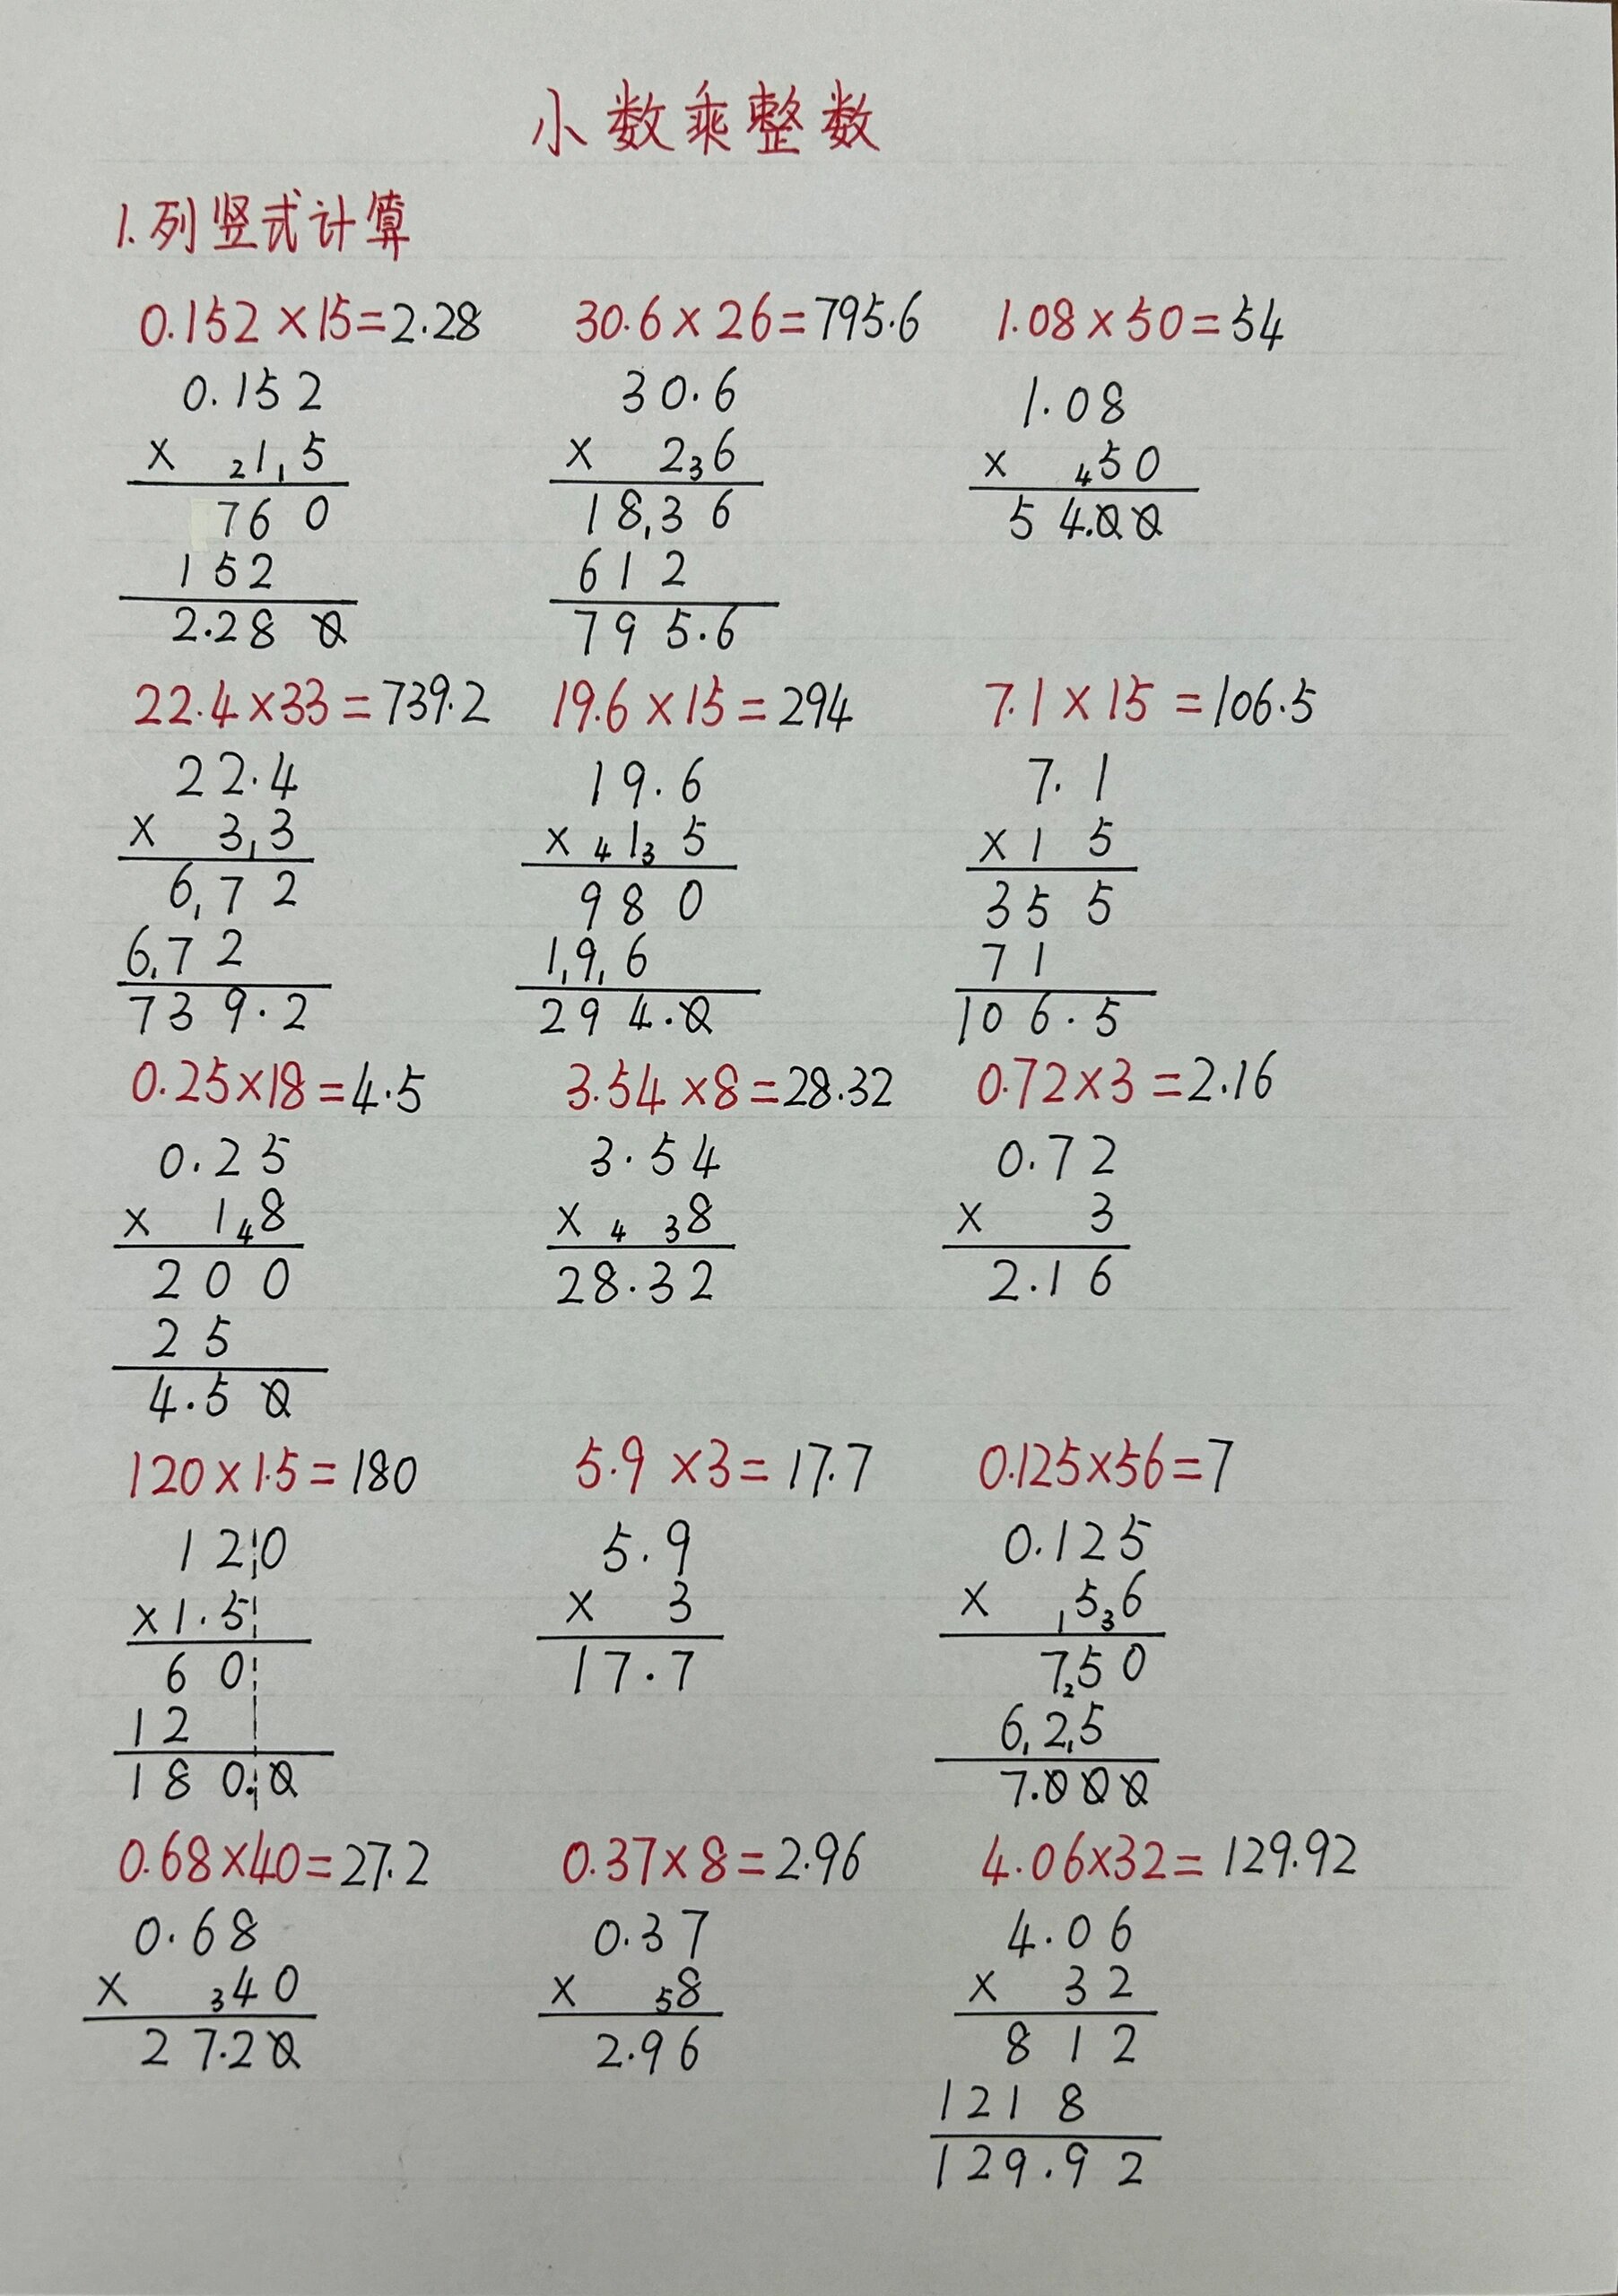 小数乘整数
1.列竖式计算
0.152×15=2.28 30.6×26=795.6 1.08×50=54
0.152 30.6 1.08
× 21,5 × 236 × 450
760 18,36 54.00
152 612
2.280 795.6
22.4×33=739.2 19.6×15=294 7.1×15=106.5
22.4 19.6 7.1
× 3,3 × 4135 ×15
6,72 980 355
6,72 1,9,6 71
739.2 294.0 106.5
0.25×18=4.5 3.54×8=28.32 0.72×3=2.16
0.25 3.54 0.72
× 148 × 4 38 × 3
200 28.32 2.16
25
4.50
120×1.5=180 5.9×3=17.7 0.125×56=7
120 5.9 0.125
×1.5 × 3 × 1536
60 17.7 7250
12 6,2,5
180.0 7.000
0.68×40=27.2 0.37×8=2.96 4.06×32=129.92
0.68 0.37 4.06
× 340 × 58 × 32
27.20 2.96 812
1218
129.92